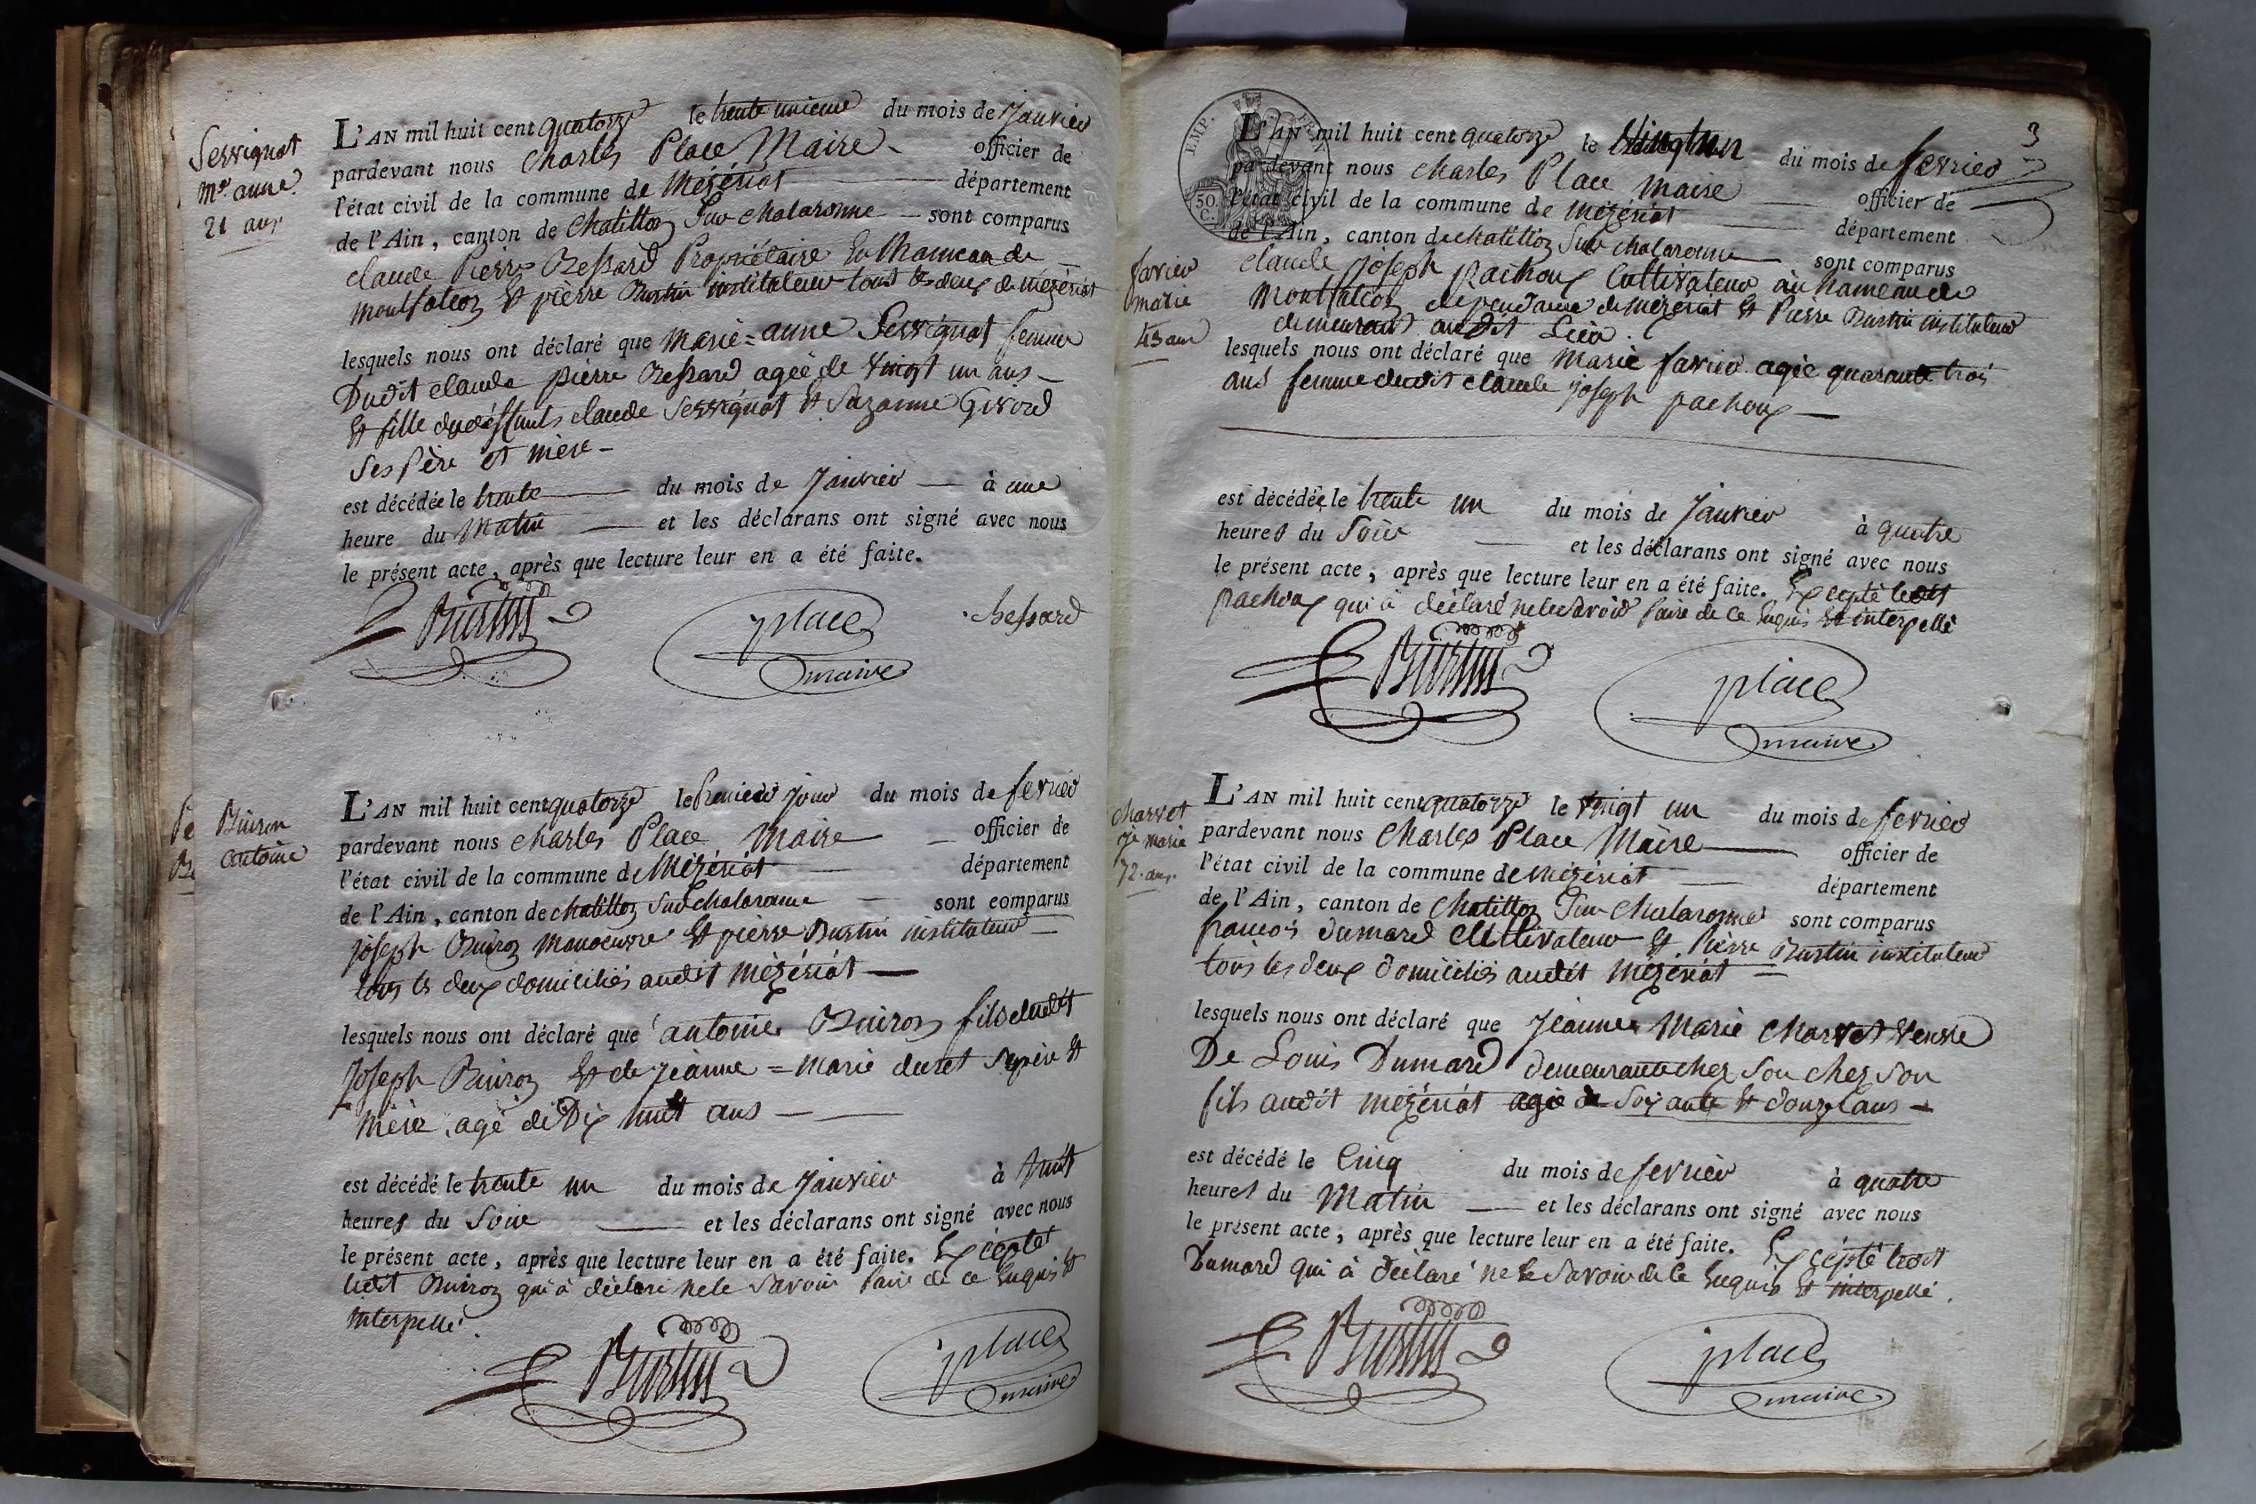 Servignat
Mie anne
21 ans
L'AN mil huit cent quatorze le trente unieme du mois de Janvier
pardevant nous Charles Place Maire officier de
l'état civil de la commune de Mézériat département
de l'Ain, canton de Chatillon Sur Chalaronne sont comparus
claude Pierre Bessard Propriétaire Au hameau de
Montfalcon Et pièrre Burtin instituteur tous les deux de mézériat
lesquels nous ont déclaré que Marie=anne Servignat femme
Dudit claude pierre Bessard agée de vingt un ans
Et fille des défunts claude Servignat Et Suzanne Girord
Ses Père et mère
est décédée le trente du mois de Janvier à une
heure du Matin et les déclarans ont signé avec nous
le présent acte, après que lecture leur en a été faite.
Burtin place maire bessard
Buiron
antoine
L'AN mil huit cent quatorze le Premier Jour du mois de fevrier
pardevant nous Charles Place Maire officier de
l'état civil de la commune de Mézériat département
de l'Ain, canton de chatillon Sur Chalaronne sont comparus
Joseph Buiron Manoeuvre Et pierre Burtin instituteur
tous les deux domiciliés audit Mézériat
lesquels nous ont déclaré que antoine Buiron fils dudit
Joseph Buiron Et de Jeanne=Marie duret Ses père Et
Mère, agé de Dix huit ans
est décédé le trente un du mois de Janvier à huit
heures du Soir et les déclarans ont signé avec nous
le présent acte, après que lecture leur en a été faite. Excepté
ledit Buiron qui à déclaré ne le Savoir Faire de ce Enquis Et
interpellé.
Burtin place maire
3
EMP. FRAN
50. C.
favier
marie
43 ans
L'AN mil huit cent quatorze le Vingt un du mois de fevrier
pardevant nous Charles Place Maire officier de
l'état civil de la commune de Mézériat département
de l'Ain, canton de chatillon Sur chalaronne sont comparus
claude Joseph pachoux Cultivateur au hameau de
Montfalcon dependance de mézériat Et Pièrre Burtin instituteur
demeurant audit Lieu.
lesquels nous ont déclaré que Marie favier agée quarante trois
ans femme dudit claude Joseph pachoux
est décédée le trente un du mois de Janvier à quatre
heures du Soir et les déclarans ont signé avec nous
le présent acte, après que lecture leur en a été faite. Excepté ledit
pachoux qui à déclaré ne le Savoir Faire de ce Enquis Et interpellé
Burtin place maire
Charvet
Je marie
72. ans.
L'AN mil huit cent quatorze le vingt un du mois de fevrier
pardevant nous Charles Place Maire officier de
l'état civil de la commune de Mézériat département
de l'Ain, canton de Chatillon Sur Chalaronne sont comparus
françois Dumard Cultivateur Et Pièrre Burtin instituteur
tous les deux Domiciliés audit Mézériat
lesquels nous ont déclaré que Jeanne Marie Charvet Veuve
De Louis Dumard demeurante chez Son chez Son
fils audit mézériat agée de Soixante Et douze ans
est décédé le Cinq du mois de fevrier à quatre
heures du Matin et les déclarans ont signé avec nous
le présent acte, après que lecture leur en a été faite. Excepté ledit
Dumard qui à déclaré ne le Savoir de ce Enquis Et interpellé.
Burtin place maire